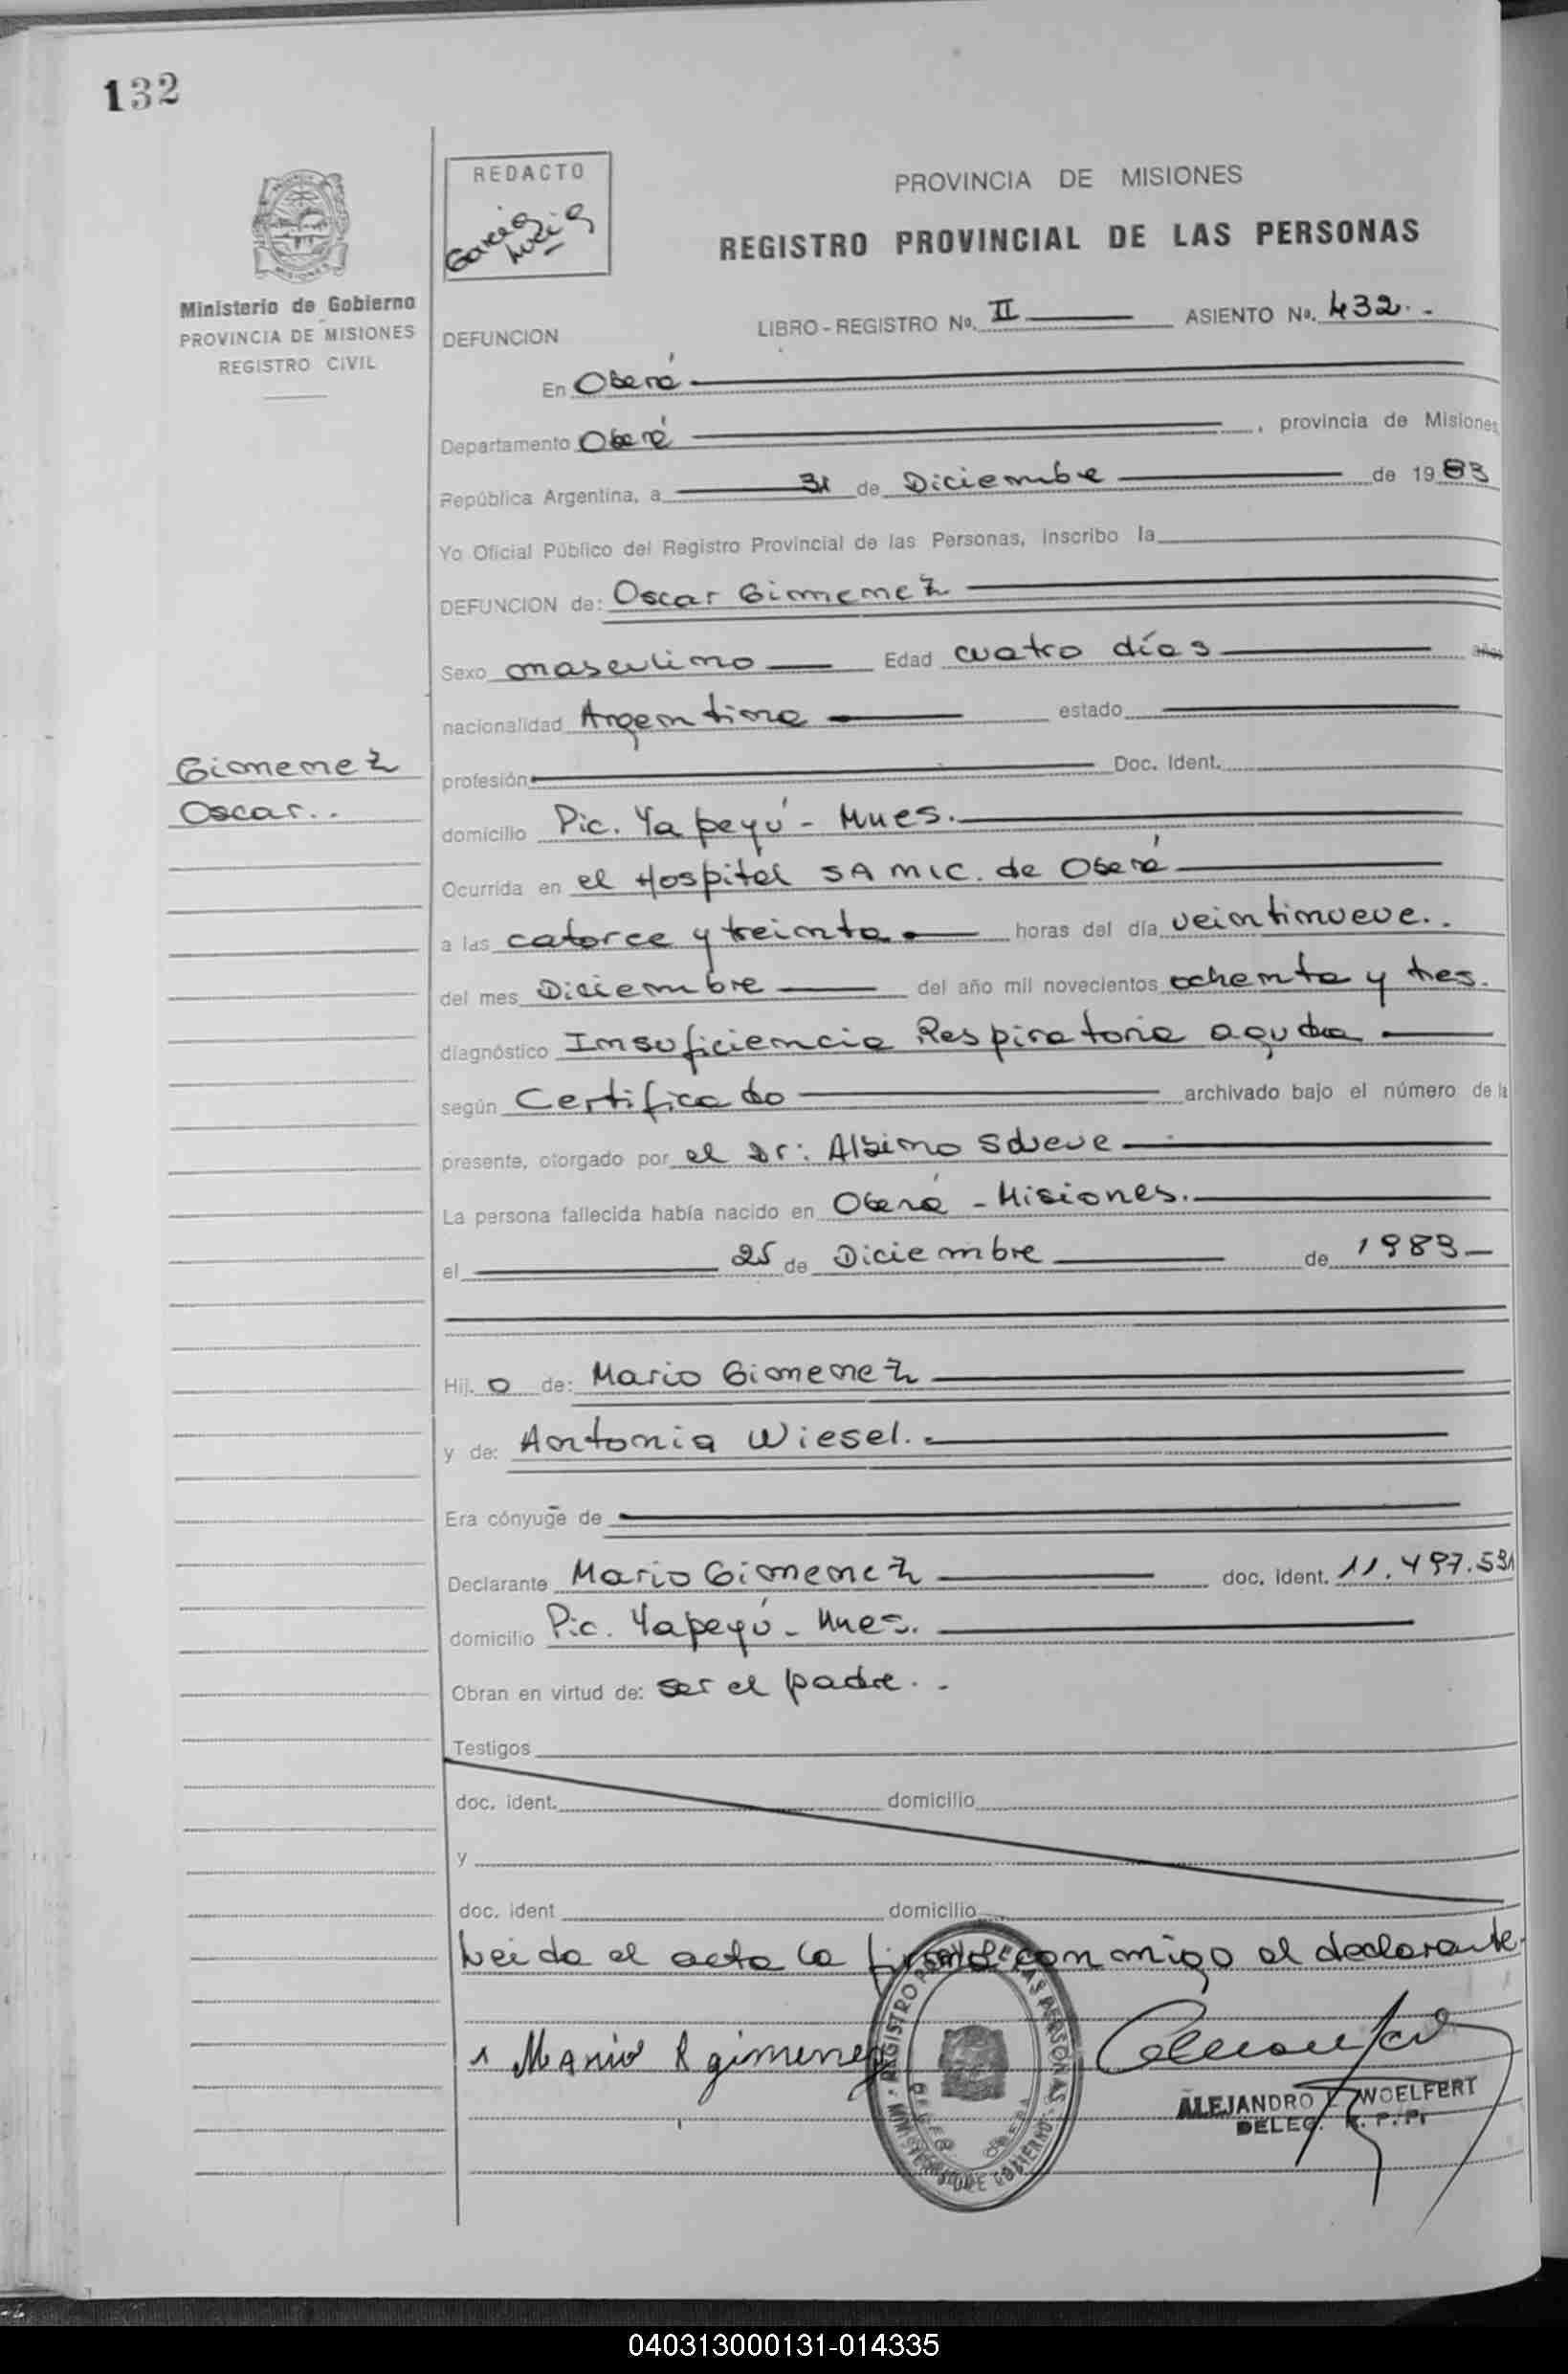 132
REDACTO
Garcia
Lucia
PROVINCIA DE MISIONES
REGISTRO PROVINCIAL DE LAS PERSONAS
Ministerio de Gobierno
PROVINCIA DE MISIONES
REGISTRO CIVIL
LIBRO-REGISTRO Nº. II ASIENTO Nº. 432.-
DEFUNCION
En Oberá
Departamento Oberá, provincia de Misiones
República Argentina, a 31 de Diciembre de 1983
Yo Oficial Público del Registro Provincial de las Personas, inscribo la
DEFUNCION de: Oscar Gimenez
Sexo masculino Edad cuatro días años
nacionalidad Argentina estado
Gimenez
Oscar..
profesión Doc. Ident.
domicilio Pic. Yapeyú - Mnes.
Ocurrida en el Hospital SAMIC. de Oberá
a las catorce y treinta horas del día veintinueve..
del mes Diciembre del año mil novecientos ochenta y tres.
diagnóstico Insuficiencia Respiratoria aguda
según Certificado archivado bajo el número de la
presente, otorgado por el Dr: Albino
La persona fallecida había nacido en Oberá - Misiones.
el 25 de Diciembre de 1983
Hij. o de: Mario Gimenez
y de: Antonia Wiesel.
Era cónyuge de
Declarante Mario Gimenez doc. ident.
domicilio Pic. Yapeyú - Mnes.
Obran en virtud de: ser el padre. -
Testigos
doc. ident. domicilio
y
doc. ident domicilio
Leida el acta la firma conmigo el declarante.
Mario R gimenez
REGISTRO PROV. DE LAS PERSONAS
MINISTERIO DE GOBIERNO
ALEJANDRO E. WOELFERT
DELEG. R. P. P.
040313000131-014335